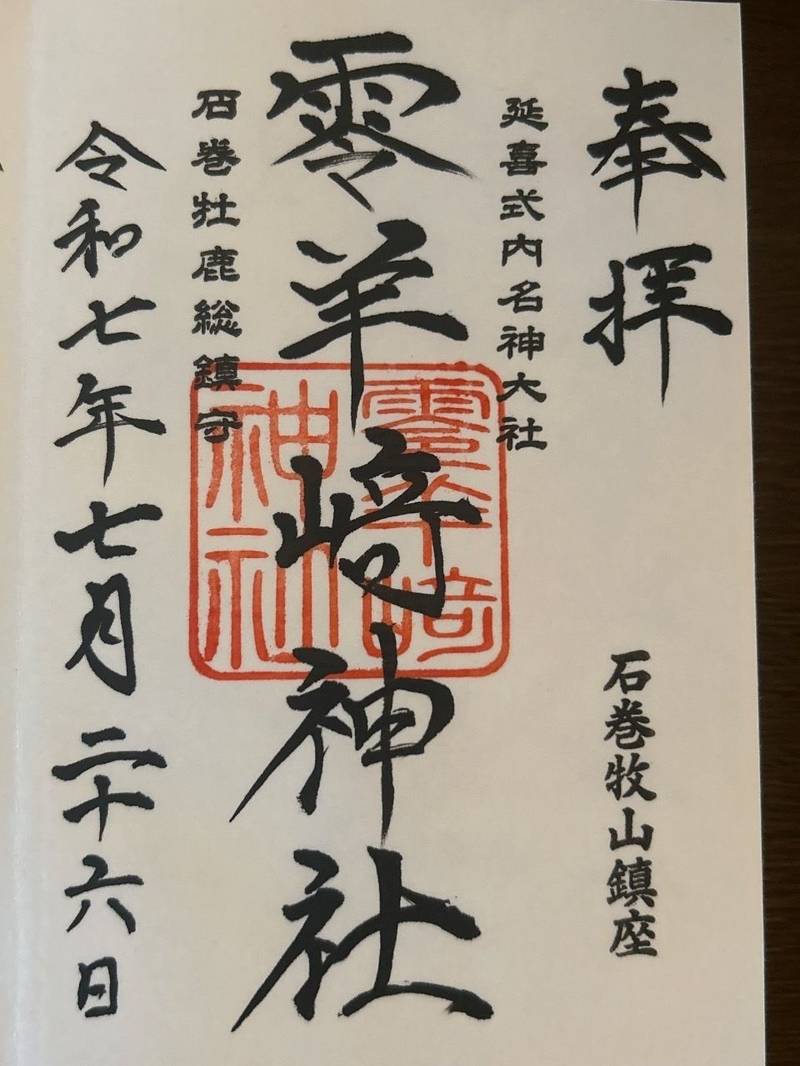 奉拝
石巻牧山鎮座
延喜式内名神大社
零羊崎神社
零羊崎
神社
石巻牡鹿総鎮守
令和七年七月二十六日